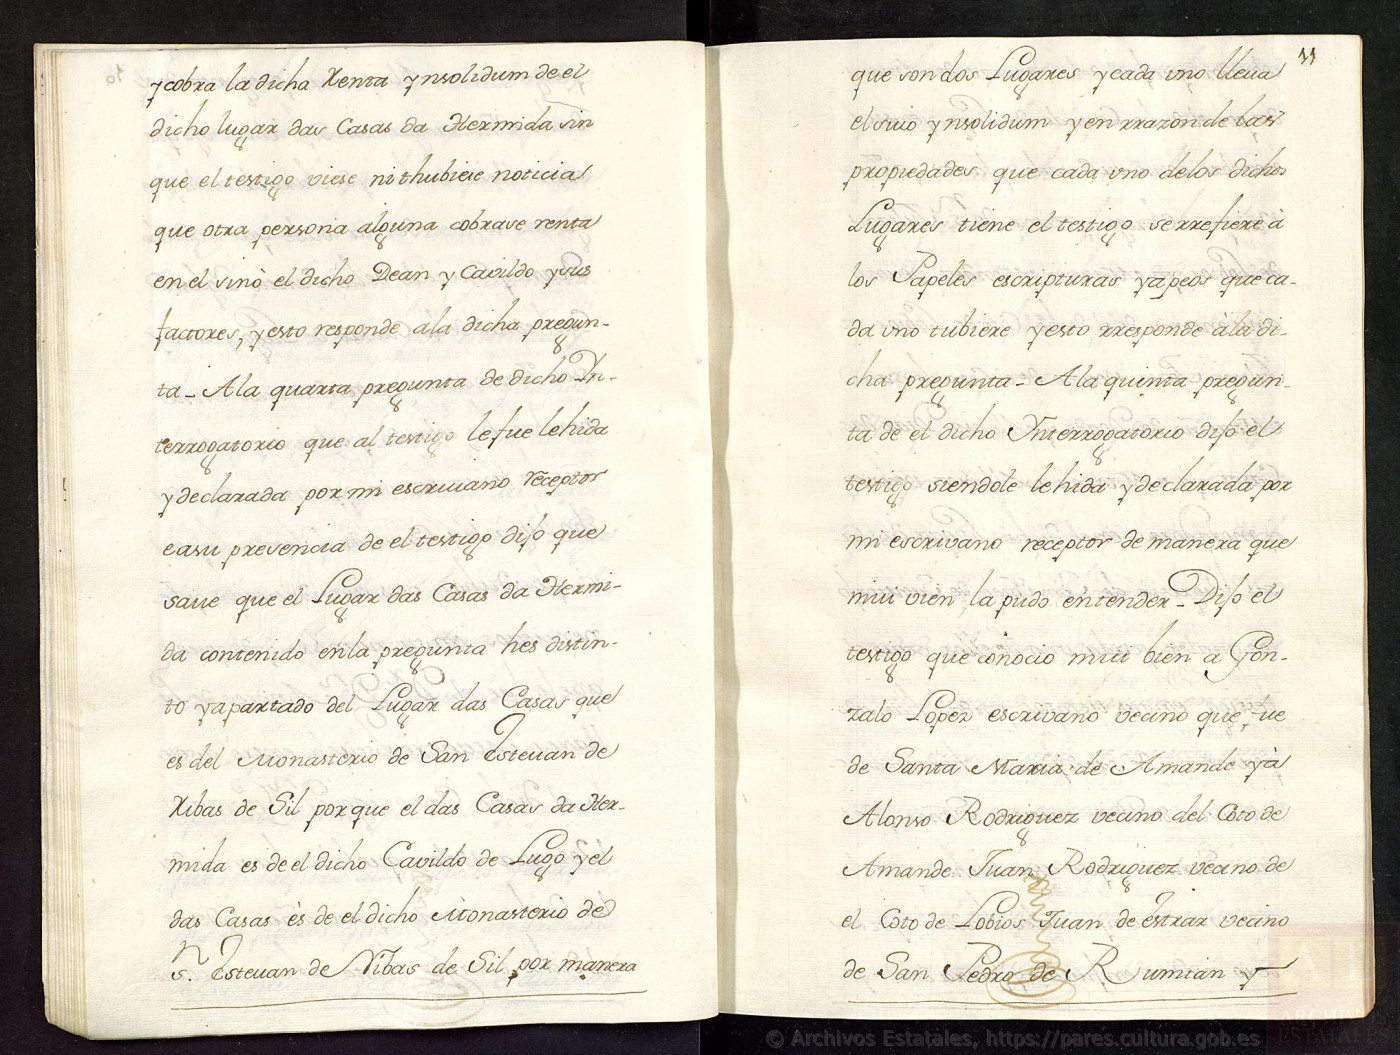 y cobra la dicha Renta ynsolidum de el
dicho lugar das Casas da Hermida sin
que el testigo viese ni thubiese noticia
que otra persona alguna cobrase renta
en el sinò el dicho Dean y Cavildo y sus
factores, y esto responde a la dicha pregun-
ta - A la quarta pregunta de dicho Yn-
terrogatorio que al testigo le fue lehida
y declarada por mi escriviano receptor
e a su presencia de el testigo dijo que
save que el Lugar das Casas da Hermi-
da contenido en la pregunta hes distin-
to y apartado del Lugar das Casas que
es del Monasterio de San Estevan de
Ribas de Sil por que el das Casas da Her-
mida es de el dicho Cavildo de Lugo y el
das Casas ès de el dicho Monasterio de
S.n Estevan de Ribas de Sil por manera
11
que son dos Lugares y cada uno lleva
el suio ynsolidum y en rrazon de las
propiedades que cada uno de los dichos
Lugares tiene el testigo se rrefiere à
los Papeles escripturas y apeos que ca-
da uno tubiere y esto rresponde à la di-
cha pregunta - A la quinta pregun-
ta de el dicho Ynterrogatorio dijo el
testigo siendole lehida y declarada por
mi escrivano receptor de manera que
mui vien la pudo entender - Dijo el
testigo que conocio mui bien a Gon-
zalo Lopez escrivano vecino que fue
de Santa Maria de Amande y à
Alonso Rodriguez vecino del Coto de
Amande Juan Rodriguez vecino de
el Coto de Lobios Juan de estrar vecino
de San Pedro de Rumian y
© Archivos Estatales, https://pares.cultura.gob.es